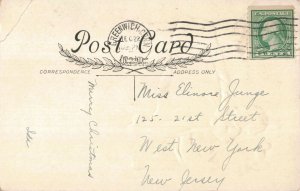 GREENWICH, CONN.
Post Card
CORRESPONDENCE
ADDRESS ONLY
Merry Christmas
Ida
Miss Elinore Junge
125 - 21st Street
West New York
New Jersey